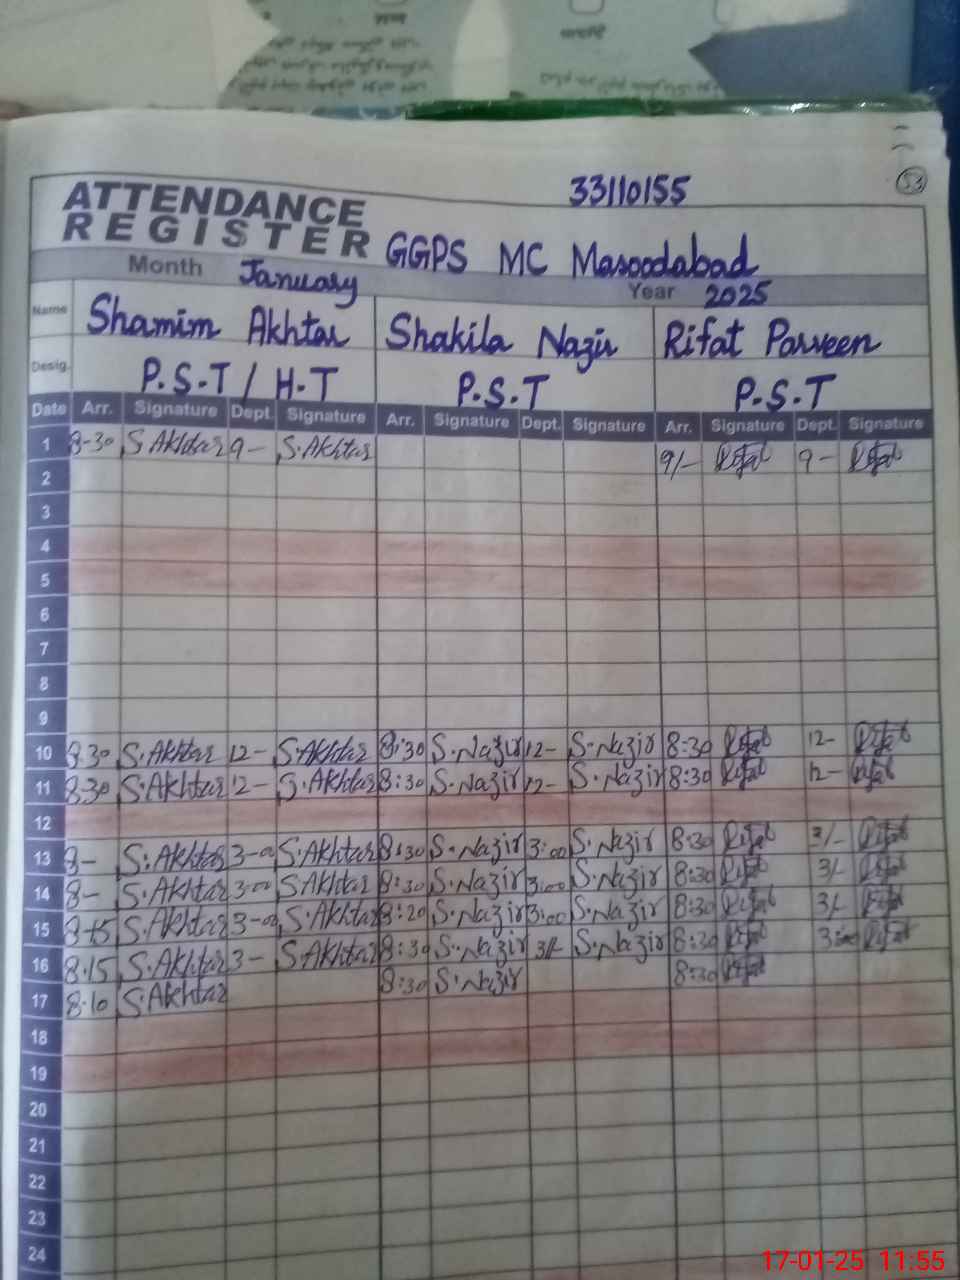 53
33110155
ATTENDANCE
REGISTER GGPS MC Masoodabad
Month January Year 2025
Name Shamim Akhtar Shakila Nazir Rifat Parveen
Desig. P.S.T / H.T P.S.T P.S.T
Date Arr. Signature Dept. Signature Arr. Signature Dept. Signature Arr. Signature Dept. Signature
1 8-30 S.Akhtar 9- S.Akhtar 9/- Rifat 9- Rifat
2
3
4
5
6
7
8
9
10 8.30 S.Akhtar 12- S.Akhtar 8:30 S.Nazir 12- S.Nazir 8:30 Rifat 12- Rifat
11 8.30 S.Akhtar 12- S.Akhtar 8:30 S.Nazir 12- S.Nazir 8:30 Rifat 12- Rifat
12
13 8- S.Akhtar 3-00 S.Akhtar 8:30 S.Nazir 3:00 S.Nazir 8:30 Rifat 3/- Rifat
14 8- S.Akhtar 3-00 S.Akhtar 8:30 S.Nazir 3:00 S.Nazir 8:30 Rifat 3/- Rifat
15 8-15 S.Akhtar 3-00 S.Akhtar 8:20 S.Nazir 3:00 S.Nazir 8:30 Rifat 3/- Rifat
16 8.15 S.Akhtar 3- S.Akhtar 8:30 S.Nazir 3/- S.Nazir 8:30 Rifat 3 Rifat
17 8.10 S.Akhtar 8:30 S.Nazir 8:30 Rifat
18
19
20
21
22
23
24
17-01-25 11:55